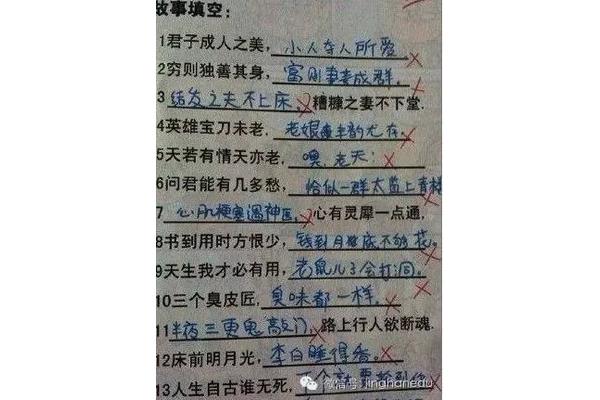 故事填空:
1君子成人之美,小人夺人所爱
2穷则独善其身,富则妻妾成群.
3结发之夫不上床,糟糠之妻不下堂.
4英雄宝刀未老,老娘风韵尤存.
5天若有情天亦老,噢,老天!
6问君能有几多愁,恰似一群太监上青楼
7心肌梗塞遇神医,心有灵犀一点通,
8书到用时方恨少,钱到月底不够花。
9天生我才必有用,老鼠儿子会打洞.
10三个臭皮匠,臭味都一样.
11半夜三更鬼敲门,路上行人欲断魂.
12床前明月光,李白睡得香。
13人生自古谁无死,下个就要轮到你
微信号: jinghanedu